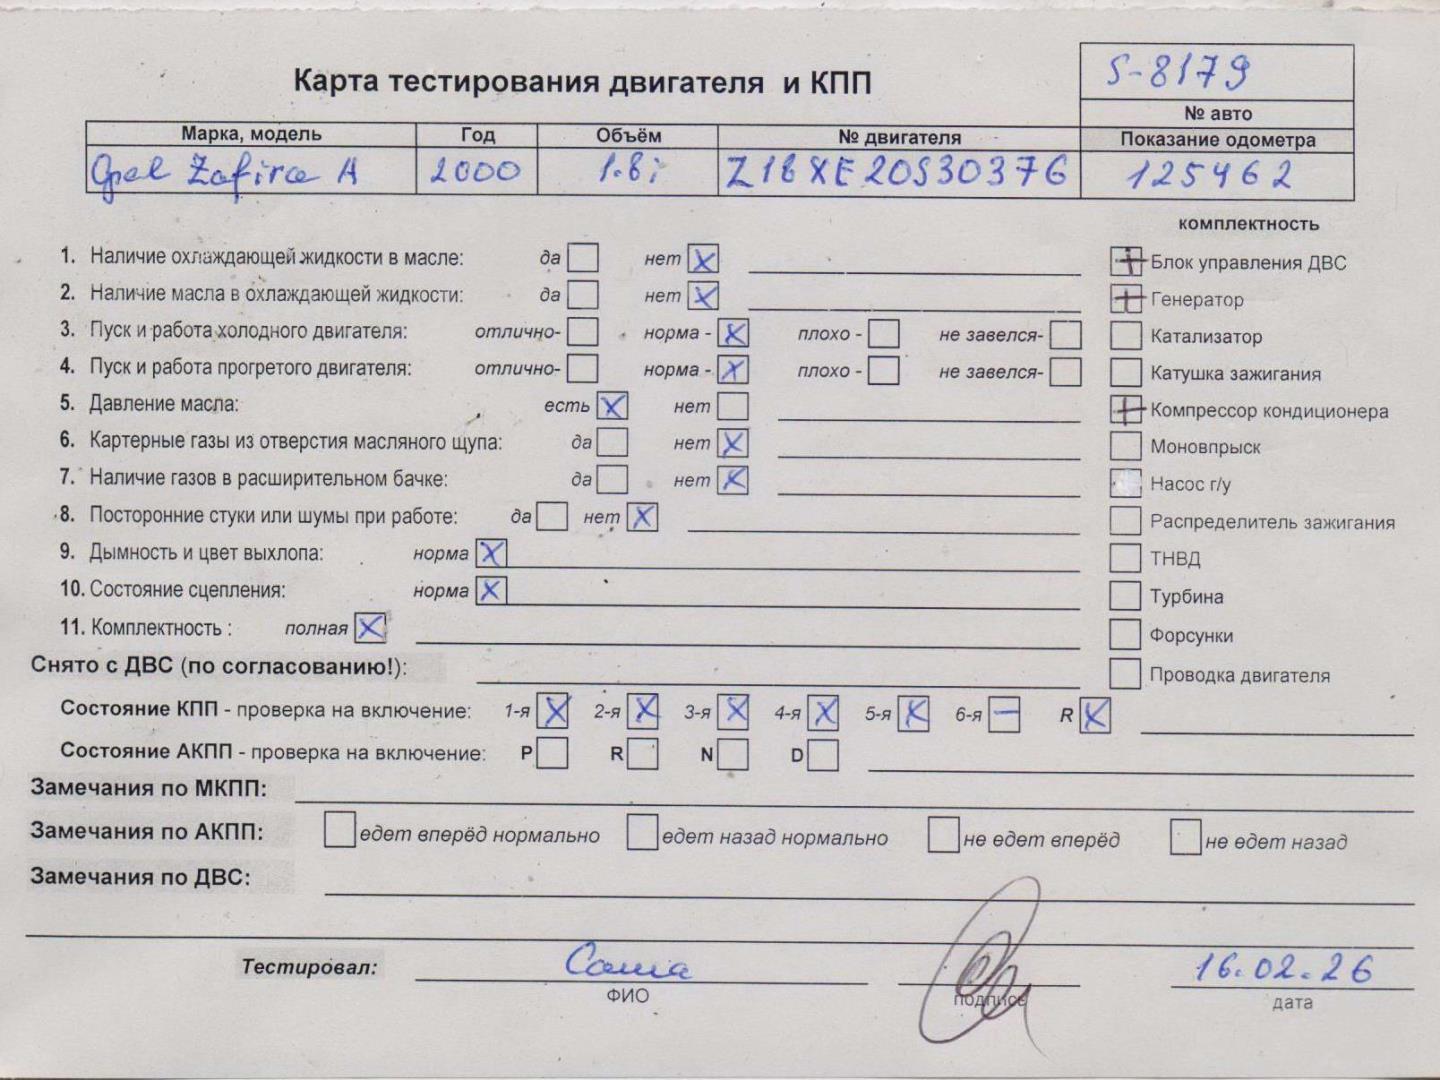 S-8179
Карта тестирования двигателя и КПП
№ авто
Марка, модель Год Объём № двигателя Показание одометра
Opel Zafira A 2000 1.8i Z18XE20S30376 125462
комплектность
1. Наличие охлаждающей жидкости в масле: да нет X + Блок управления ДВС
2. Наличие масла в охлаждающей жидкости: да нет X + Генератор
3. Пуск и работа холодного двигателя: отлично- норма - X плохо - не завелся- Катализатор
4. Пуск и работа прогретого двигателя: отлично- норма - X плохо - не завелся- Катушка зажигания
5. Давление масла: есть X нет + Компрессор кондиционера
6. Картерные газы из отверстия масляного щупа: да нет X Моновпрыск
7. Наличие газов в расширительном бачке: да нет X Насос г/у
8. Посторонние стуки или шумы при работе: да нет X Распределитель зажигания
9. Дымность и цвет выхлопа: норма X ТНВД
10. Состояние сцепления: норма X Турбина
11. Комплектность : полная X Форсунки
Снято с ДВС (по согласованию!): Проводка двигателя
Состояние КПП - проверка на включение: 1-я X 2-я X 3-я X 4-я X 5-я X 6-я — R X
Состояние АКПП - проверка на включение: P R N D
Замечания по МКПП:
Замечания по АКПП: едет вперёд нормально едет назад нормально не едет вперёд не едет назад
Замечания по ДВС:
Тестировал: Саша 16.02.26
ФИО подпись дата